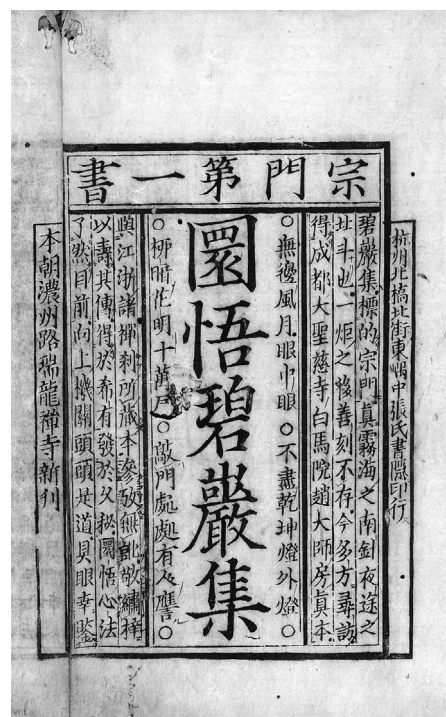 宗門第一書
杭州北橋北街東嵎中張氏書隱印行
碧巖集標的宗門真霧海之南針夜途之
北斗也一炬之後善刻不存今多方尋訪
得成都大聖慈寺白馬院趙大師房真本
○無邊風月眼中眼○不盡乾坤燈外燈○
圜悟碧巖集
○柳暗花明十萬戶○敲門處處有人譍○
與江浙諸禪刹所蔵本參攷無訛敬繡梓
以壽其傳得於希有發於久秘圜悟心法
了然目前向上機關頭頭是道具眼幸鑒
本朝濃州路瑞龍禪寺新刊